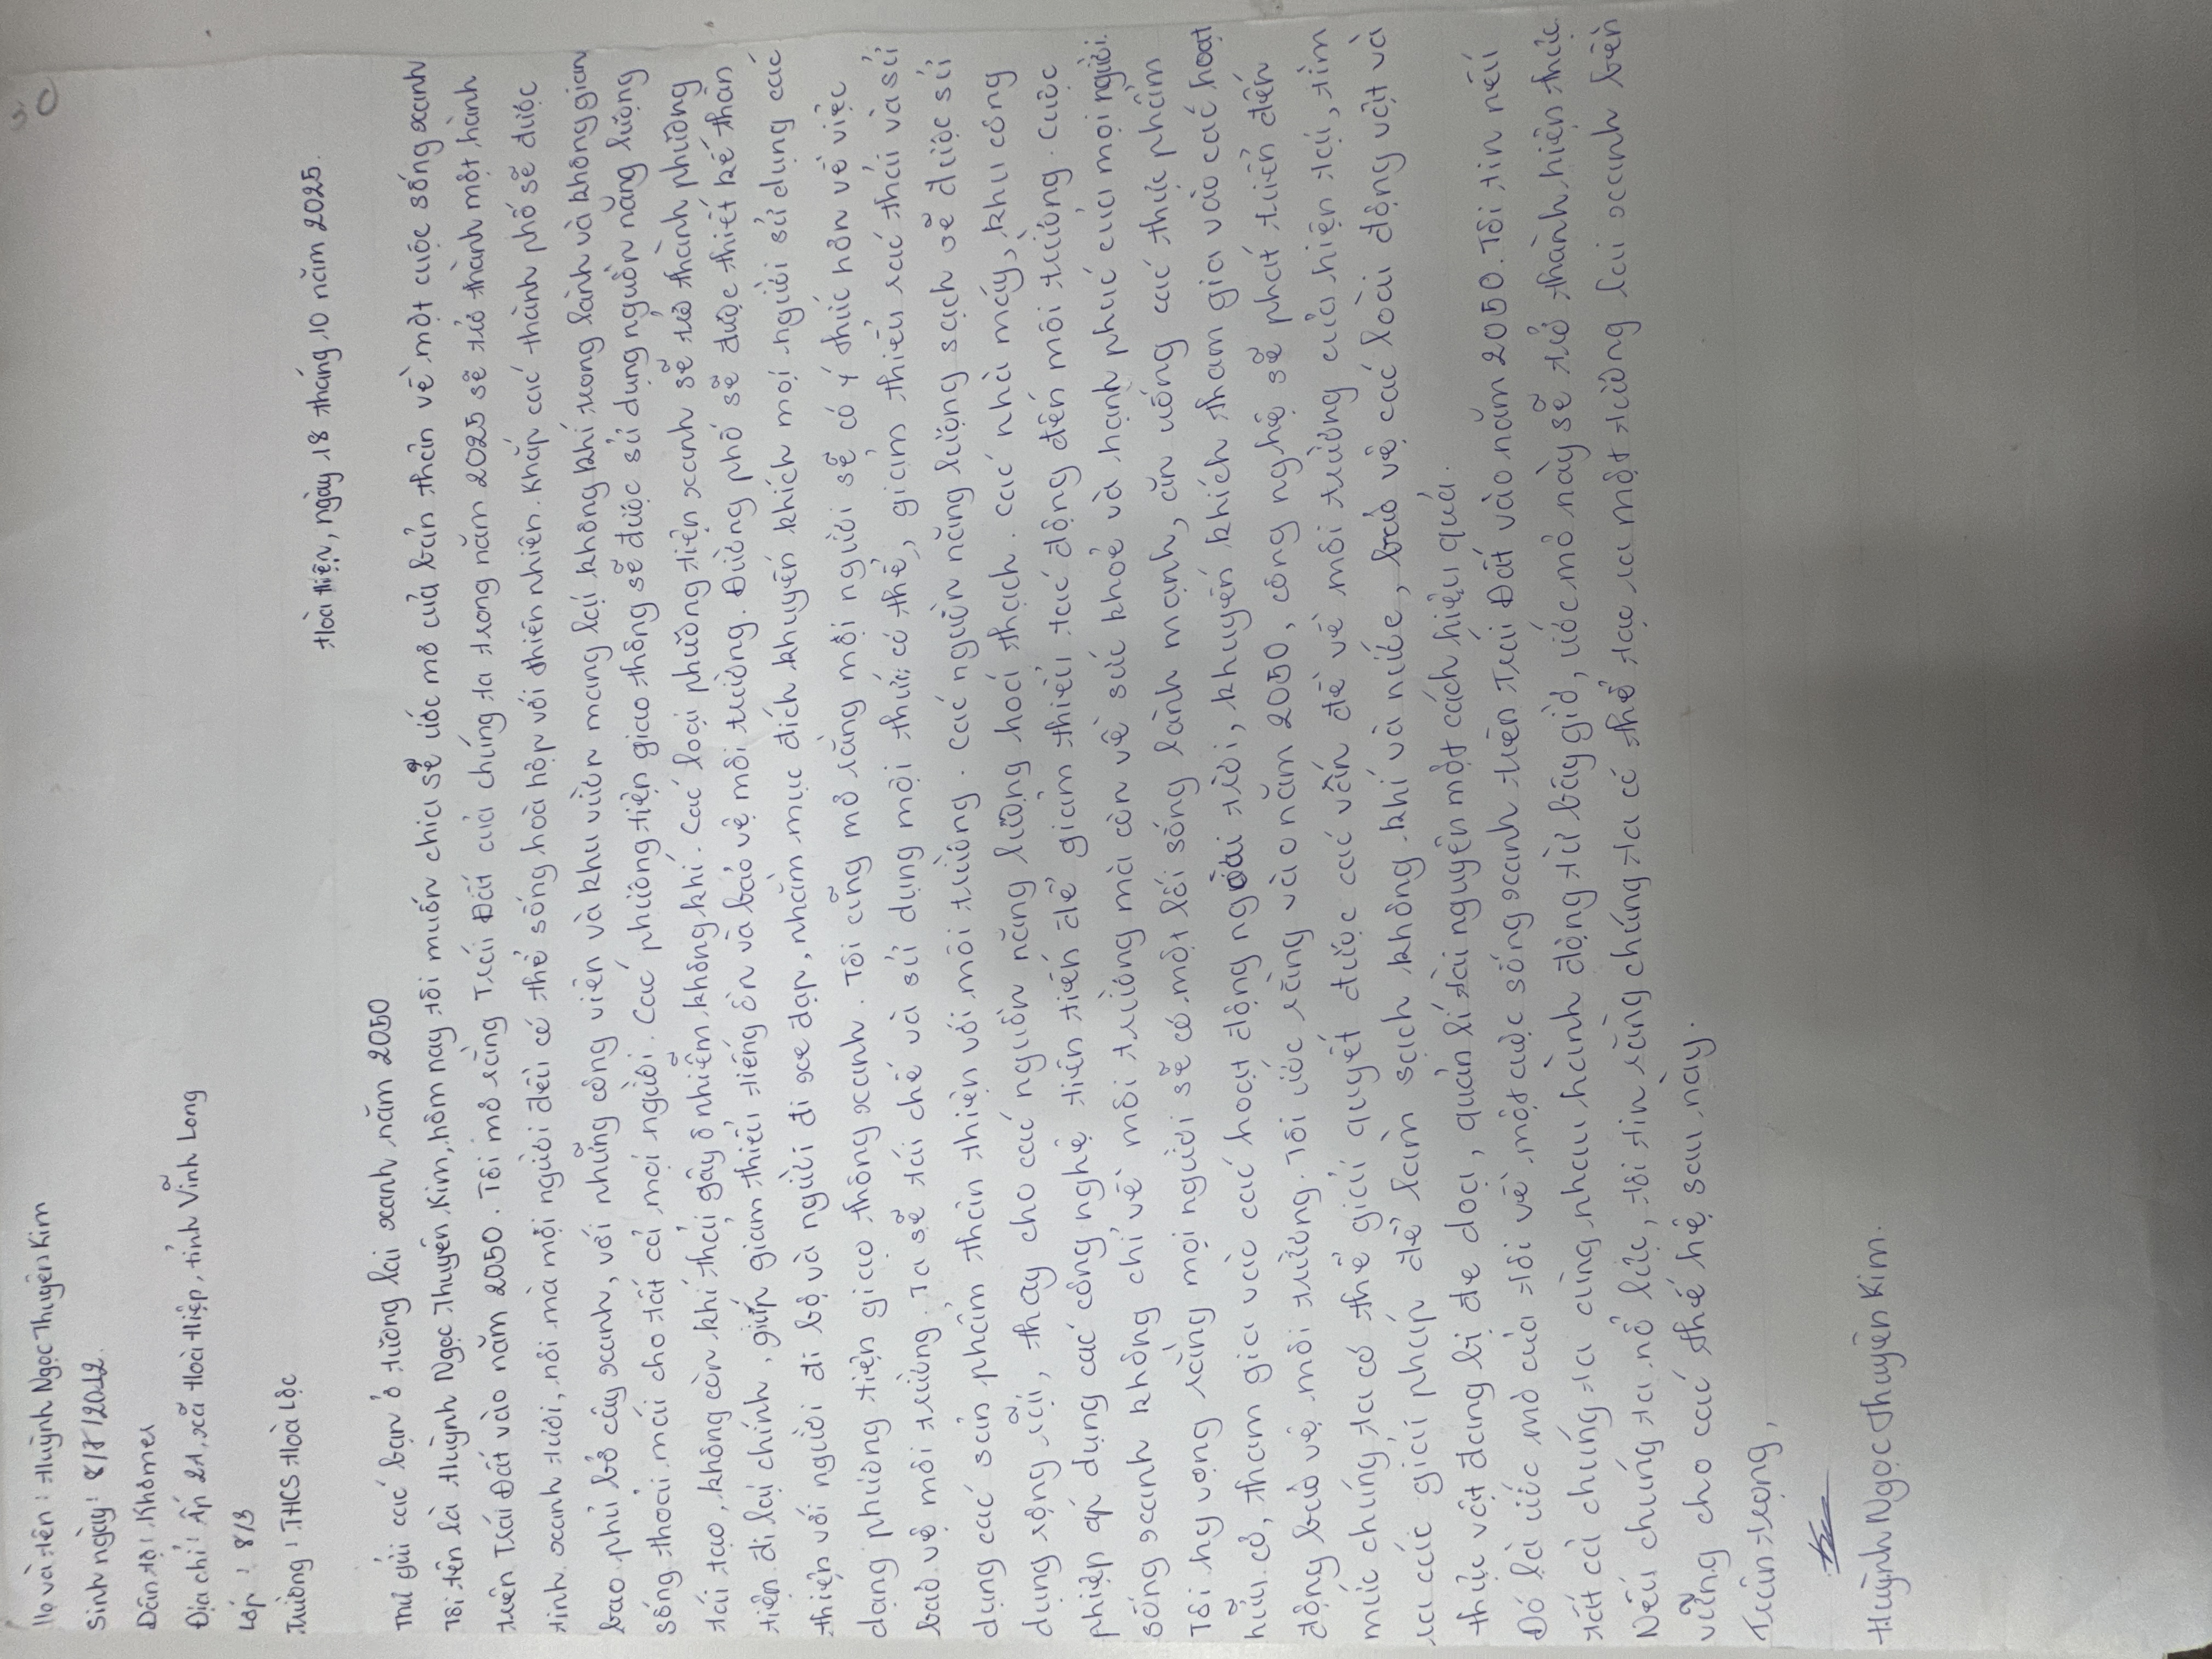 30
Họ và tên: Huỳnh Ngọc Thuyên Kim
Sinh ngày: 8/7/2012.
Dân tộ: Khômer
Địa chỉ: Ấp 21, xã Hoài Hiệp, tỉnh Vĩnh Long
Lớp: 8/3
Trường: THCS Hoà Lộc
Hoà Hiện, ngày 18 tháng 10 năm 2025.
Thư gửi các bạn ở tương lai xanh năm 2050
Tôi tên là Huỳnh Ngọc Thuyên Kim, hôm nay tôi muốn chia sẽ ước mơ của bản thân về một cuộc sống xanh
trên Trái Đất vào năm 2050. Tôi mơ rằng Trái Đất của chúng ta trong năm 2025 sẽ trở thành một hành
tinh xanh tươi, nơi mà mỗi người đều có thể sống hoà hợp với thiên nhiên. Khắp các thành phố sẽ được
bao phủ bở cây xanh, với những công viên và khu vườn mang lại không khí trong lành và không gian
sống thoải mái cho tất cả mọi người. Các phương tiện giao thông sẽ được sử dụng nguồn năng lượng
tái tạo, không còn khí thải gây ô nhiễm không khí. Các loại phương tiện xanh sẽ trở thành phương
tiện đi lại chính, giúp giảm thiểu tiếng ồn và bảo vệ môi trường. Đường phố sẽ được thiết kế thân
thiện với người đi bộ và người đi xe đạp, nhằm mục đích khuyến khích mọi người sử dụng các
dạng phương tiện giao thông xanh. Tôi cũng mơ rằng mỗi người sẽ có ý thức hơn về việc
bảo vệ môi trường. Ta sẽ tái chế và sử dụng mọi thức có thể, giảm thiểu rác thải và sử
dụng các sản phẩm thân thiện với môi trường. Các nguồn năng lượng sạch sẽ được sử
dụng rộng rãi, thay cho các nguồn năng lượng hoá thạch. Các nhà máy, khu công
nghiệp áp dụng các công nghệ tiên tiến để giảm thiểu tác động đến môi trường. Cuộc
sống xanh không chỉ về môi trường mà còn về sức khoẻ và hạnh phúc của mọi người.
Tôi hy vọng rằng mọi người sẽ có một lối sống lành mạnh, ăn uống các thực phẩm
hữu cơ, tham gia vào các hoạt động ngoài trời, khuyến khích tham gia vào các hoạt
động bảo vệ môi trường. Tôi ước rằng vào năm 2050, công nghệ sẽ phát triển đến
mức chúng ta có thể giải quyết được các vấn đề về môi trường của hiện tại, tìm
ra các giải pháp để làm sạch không khí và nước, bảo vệ các loài động vật và
thực vật đang bị đe doạ, quản lí tài nguyên một cách hiệu quả.
Đó là ước mơ của tôi về một cuộc sống xanh trên Trái Đất vào năm 2050. Tôi tin nếu
tất cả chúng ta cùng nhau hành động từ bây giờ, ước mơ này sẽ trở thành hiện thực.
Nếu chúng ta nổ lực, tôi tin rằng chúng ta có thể tạo ra một tương lai xanh bền
vững cho các thế hệ sau này.
Trân trọng,
Huỳnh Ngọc Thuyên Kim.